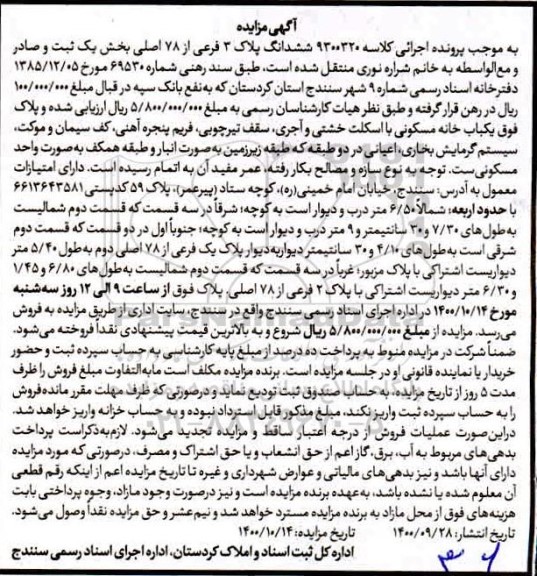 آگهی مزایده
به موجب پرونده اجرائی کلاسه ۹۳۰۰۳۲۰ ششدانگ پلاک ۳ فرعی از ۷۸ اصلی بخش یک ثبت و صادر
و مع‌الواسطه به خانم شراره نوری منتقل شده است، طبق سند رهنی شماره ۶۹۵۳۰ مورخ ۱۳۸۵/۱۲/۰۵
دفترخانه اسناد رسمی شماره ۹ شهر سنندج استان کردستان که به‌نفع بانک سپه در قبال مبلغ ۱۰۰/۰۰۰/۰۰۰
ریال در رهن قرار گرفته و طبق نظر هیات کارشناسان رسمی به مبلغ ۵/۸۰۰/۰۰۰/۰۰۰ ریال ارزیابی شده و پلاک
فوق یکباب خانه مسکونی با اسکلت خشتی و آجری، سقف تیرچوبی، فریم پنجره آهنی، کف سیمان و موکت،
سیستم گرمایش بخاری، اعیانی در دو طبقه که طبقه زیرزمین به‌صورت انبار و طبقه همکف به‌صورت واحد
مسکونی‌ست. توجه به نوع سازه و مصالح بکار رفته، عمر مفید آن به اتمام رسیده است. دارای امتیازات
معمول به آدرس: سنندج، خیابان امام خمینی(ره)، کوچه ستاد (پیرعمر)، پلاک ۵۹ کدپستی ۶۶۱۳۶۴۳۵۸۱
با حدود اربعه: شمالا ۶/۵۰ متر درب و دیوار است به کوچه؛ شرقاً در سه قسمت که قسمت دوم شمالیست
به‌طول‌های ۷/۳۰ و ۳۰ سانتیمتر و ۹ متر درب و دیوار است به کوچه؛ جنوباً اول در دو قسمت که قسمت دوم
شرقی است به‌طول‌های ۴/۱۰ و ۳۰ سانتیمتر دیواربه‌دیوار پلاک یک فرعی از ۷۸ اصلی دوم به‌طول ۵/۴۰ متر
دیواریست اشتراکی با پلاک مزبور؛ غرباً در سه قسمت که قسمت دوم شمالیست به‌طول‌های ۶/۸۰ و ۱/۴۵
و ۶/۳۰ متر دیواریست اشتراکی با پلاک ۲ فرعی از ۷۸ اصلی. پلاک فوق از ساعت ۹ الی ۱۲ روز سه‌شنبه
مورخ ۱۴۰۰/۱۰/۱۴ در اداره اجرای اسناد رسمی سنندج واقع در سنندج، سایت اداری از طریق مزایده به فروش
می‌رسد. مزایده از مبلغ ۵/۸۰۰/۰۰۰/۰۰۰ ریال شروع و به بالاترین قیمت پیشنهادی نقداً فروخته می‌شود.
ضمناً شرکت در مزایده منوط به پرداخت ده درصد از مبلغ پایه کارشناسی به حساب سپرده ثبت و حضور
خریدار یا نماینده قانونی او در جلسه مزایده است. برنده مزایده مکلف است مابه‌التفاوت مبلغ فروش را ظرف
مدت ۵ روز از تاریخ مزایده، به حساب صندوق ثبت تودیع نماید و درصورتی که ظرف مهلت مقرر مانده‌فروش
را به حساب سپرده ثبت واریز نکند، مبلغ مذکور قابل استرداد نبوده و به حساب خزانه واریز خواهد شد.
دراین‌صورت عملیات فروش از درجه اعتبار ساقط و مزایده تجدید می‌شود. لازم‌به‌ذکراست پرداخت
بدهی‌های مربوط به آب، برق، گاز اعم از حق انشعاب و یا حق اشتراک و مصرف، درصورتی که مورد مزایده
دارای آنها باشد و نیز بدهی‌های مالیاتی و عوارض شهرداری و غیره تا تاریخ مزایده اعم از اینکه رقم قطعی
آن معلوم شده یا نشده باشد، به‌عهده برنده مزایده است و نیز درصورت وجود مازاد، وجوه پرداختی بابت
هزینه‌های فوق از محل مازاد به برنده مزایده مسترد خواهد شد و نیم‌عشر و حق مزایده نقداً وصول می‌شود.
تاریخ انتشار: ۱۴۰۰/۰۹/۲۸ تاریخ مزایده: ۱۴۰۰/۱۰/۱۴
اداره کل ثبت اسناد و املاک کردستان، اداره اجرای اسناد رسمی سنندج